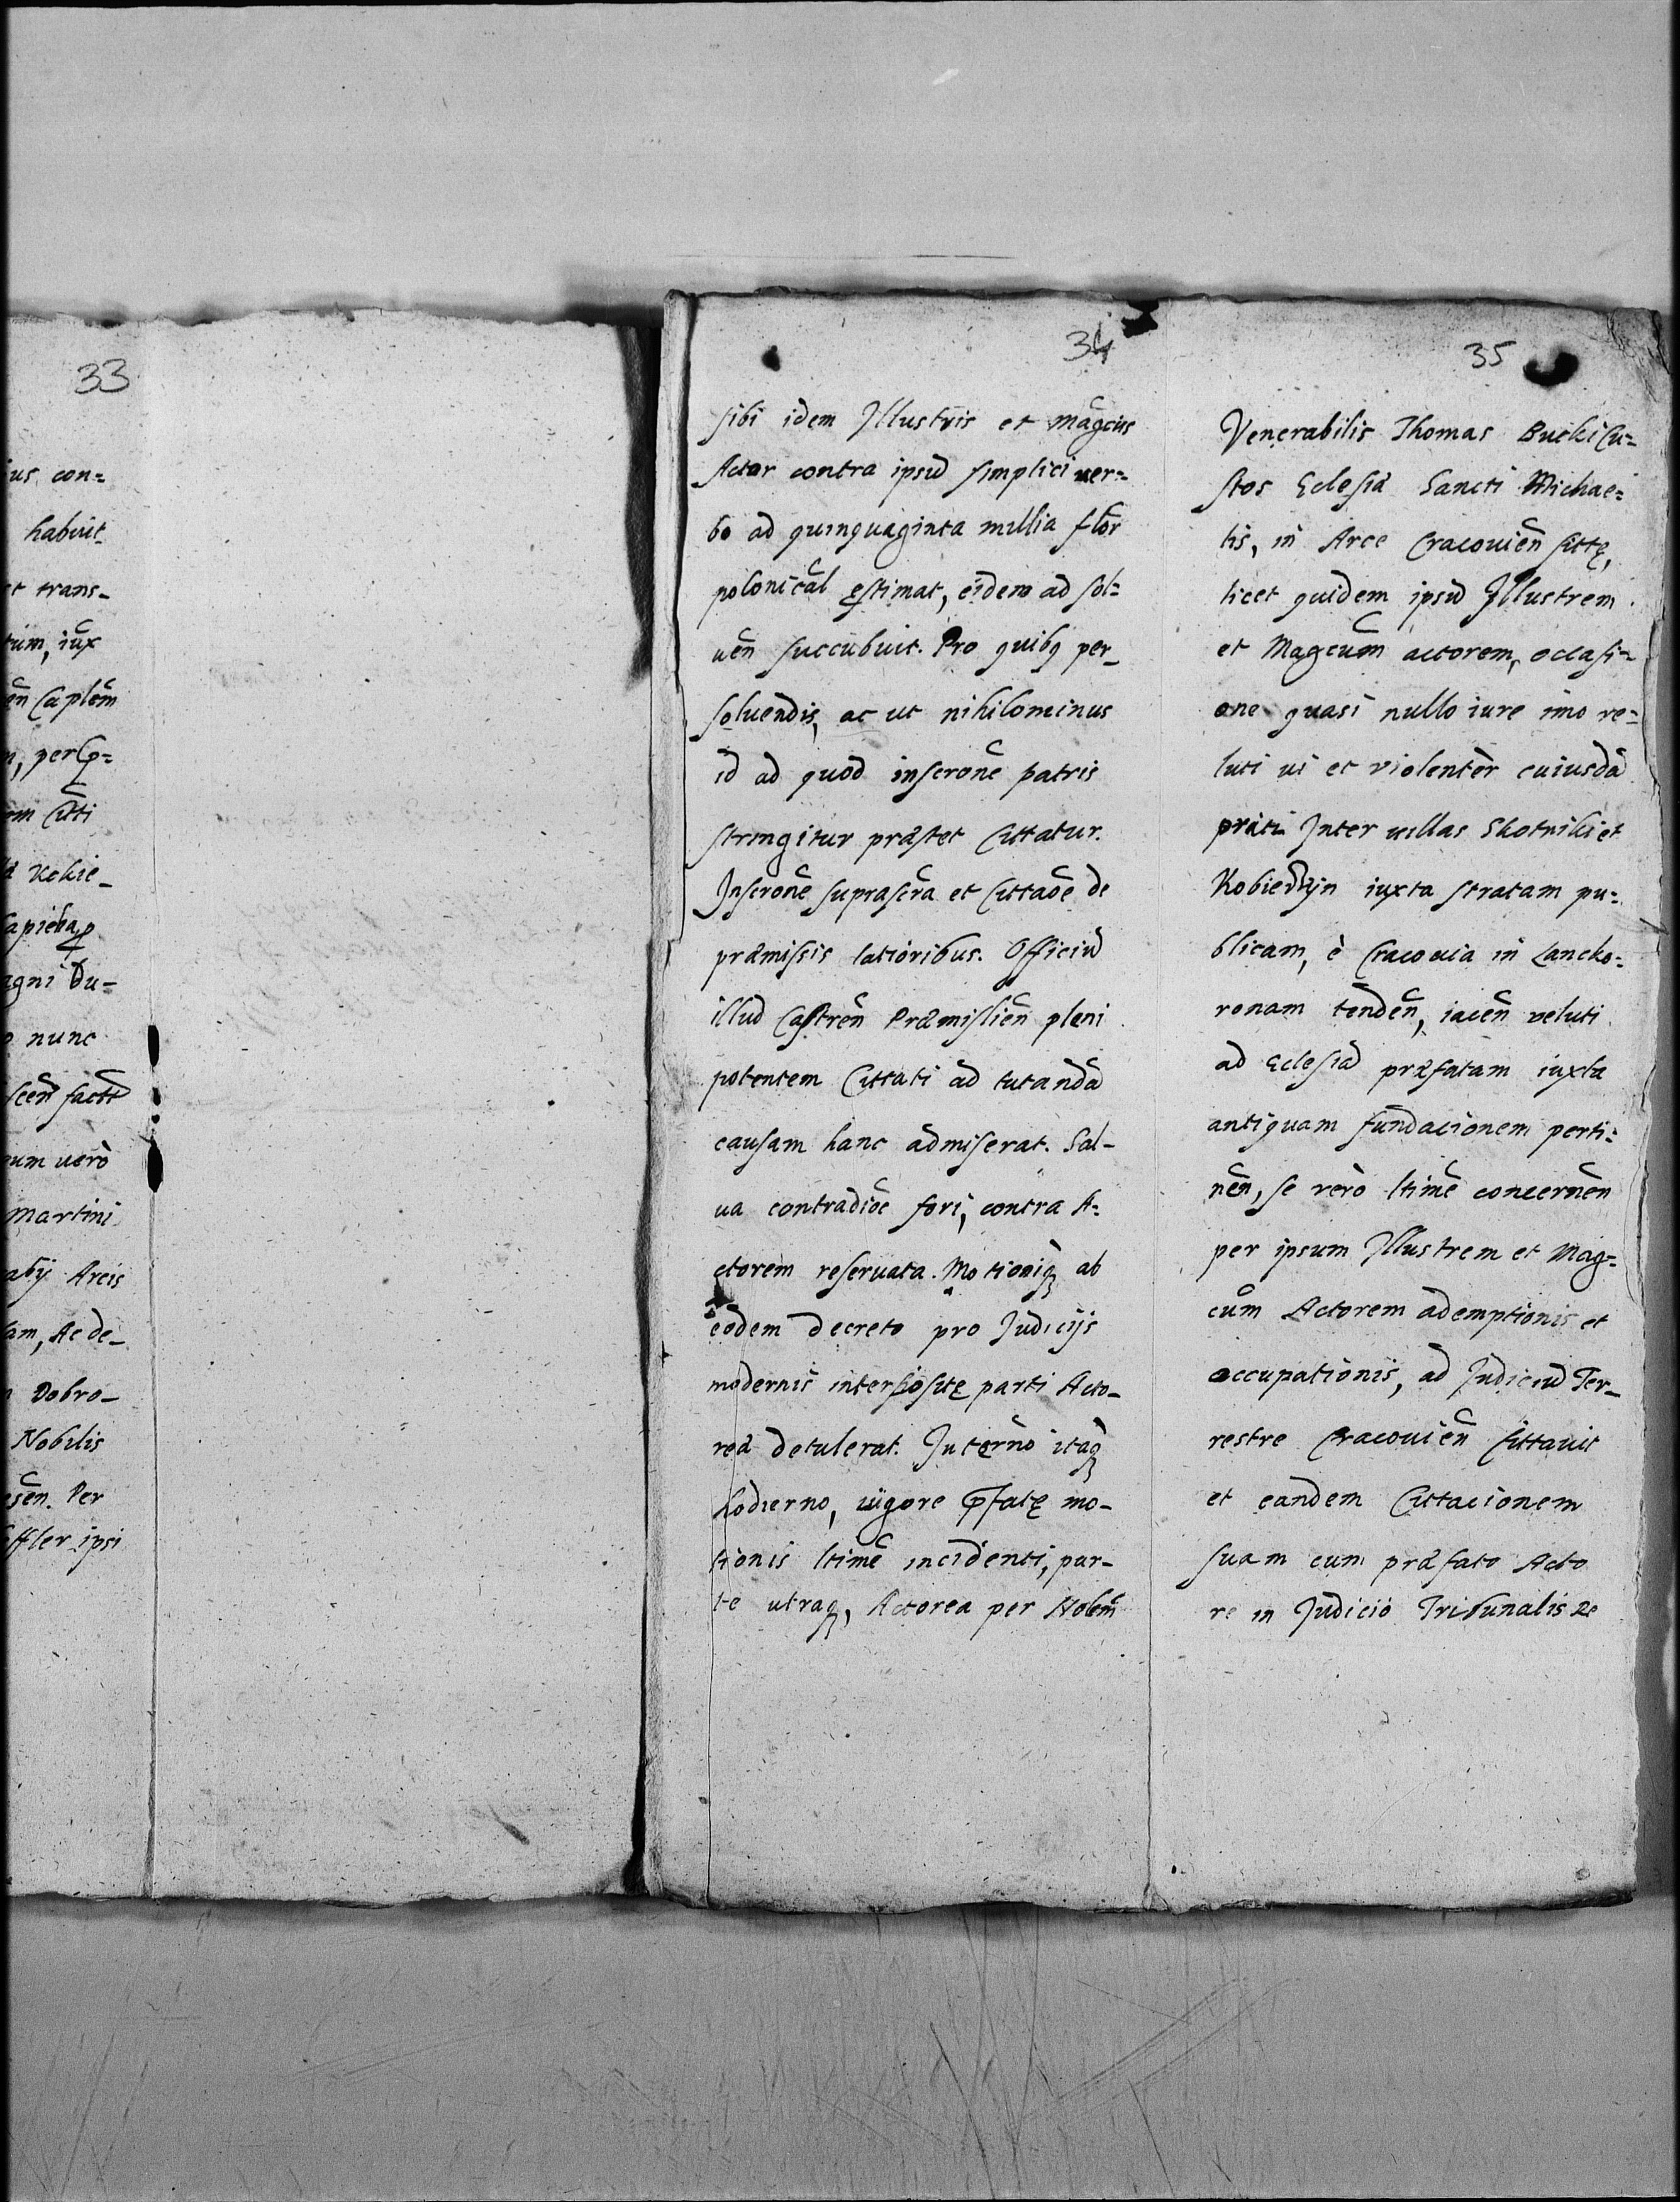 33
ius con=
habuit
et trans_
tum, iux
en Caplem
perCp=
Citti
Kekie_
apieha
agni Du-
nunc
scen factt
eum uerò
Martini
Arcis
am, Ac de_
Dobro_
Nobilis
Per
ffler ipsi
34
sibi idem Illustris et magcus
Actor contra ipsū simplici uer=
bo ad quinquaginta millia flor
polonical ęstimat, eidem ad sol=
uen succubuit. Pro quibq per_
soluendis, ac ut nihilominus
id ad quod inscrone patris
stringitur præstet Cittatur.
Inscrone suprascra et Cittaoe de
præmissis latioribus. Officiū
illud Castren Præmislien pleni
potentem Cittati ad tutandā
causam hanc admiserat. Sal-
ua contradioe fori, contra A=
ctorem reseruata. Motioniq ab
eodem decreto pro Judicijs
modernis interpositę parti Acto_
reā detulerat. In termo itaq
hodierno, uigore pfatę mo-
tionis ltime incidenti, par-
te utraq, Actorea per Nobem
35
Venerabilis Thomas Bucki Cu=
stos Eclesiæ Sancti Michae=
lis, in Arce Cracouien sittę,
licet quidem ipsū Illustrem
et Magcum actorem, occasi=
one quasi nullo iure imo ve=
luti ui et violenter cuiusdā
prati Inter uillas Skotniki et
Kobierzijn iuxta stratam pu=
blicam, è Cracouia in Lancko=
ronam tenden, iacen veluti
ad Eclesiā præfatam iuxta
antiquam fundacionem perti=
nen, se verò ltime concernen
per ipsum Illustrem et Mag=
cum Actorem ademptionis et
occupationis, ad Judiciū Ter_
restre Cracouien Cittauit
et eandem Cittacionem
suam cum præfato Acto
re in Judicio Tribunalis Re